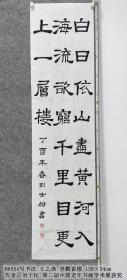 白日依山盡黃河入
海流欲窮千里目更
上一層樓
丁酉年春刘士松書
B6554号书法 王之涣 登鹳雀楼 138×34cm
刘士松 第二届中国老年书画学术展获奖